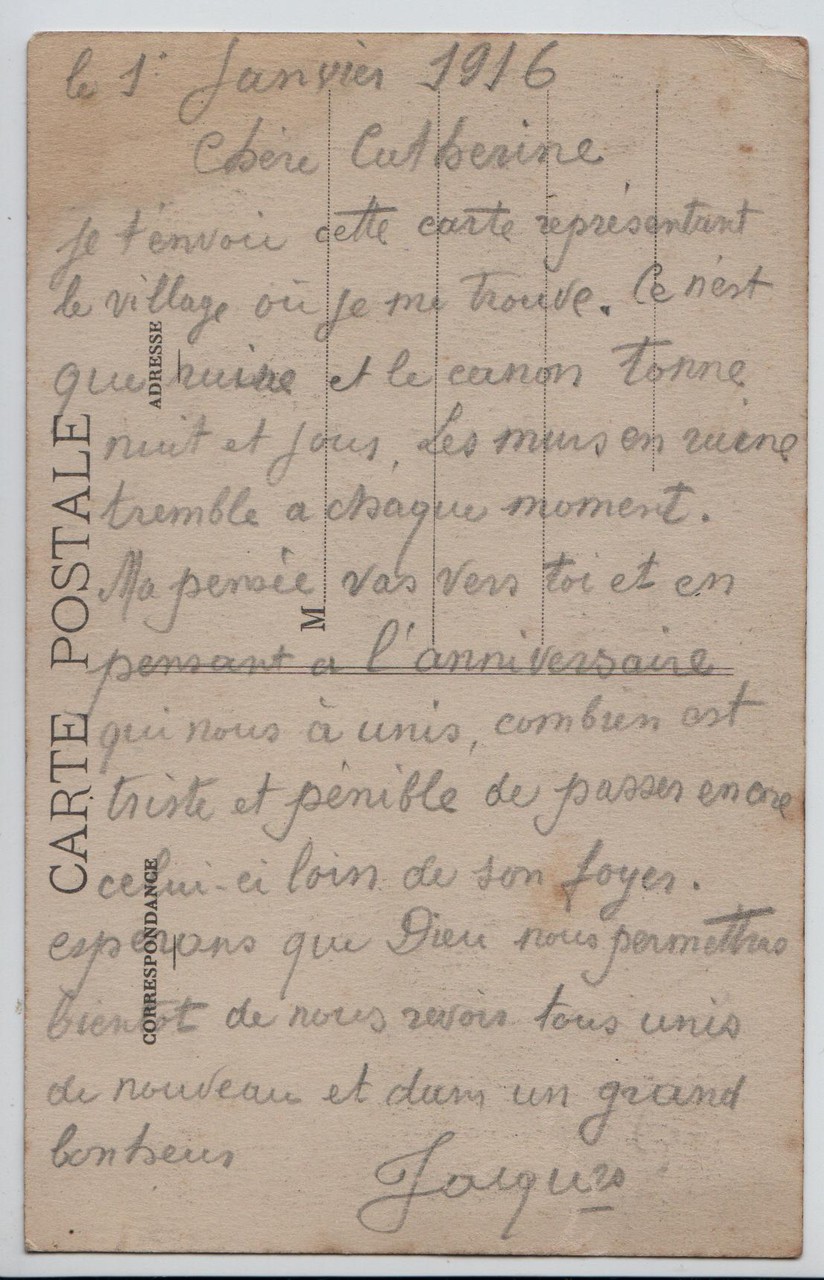 le 1er Janvier 1916
Chère Catherine
je t'envoie cette carte représentant
le village où je me trouve. Ce n'est
que ruine et le canon tonne
nuit et jour, Les murs en ruine
tremble a chaque moment.
Ma pensée vas vers toi et en
pensant a l'anniversaire
qui nous à unis, combien est
triste et pénible de passer encore
celui-ci loin de son foyer.
esperons que Dieu nous permettras
bientot de nous revoir tous unis
de nouveau et dans un grand
bonheur
Jacques
CARTE POSTALE
ADRESSE
CORRESPONDANCE
M